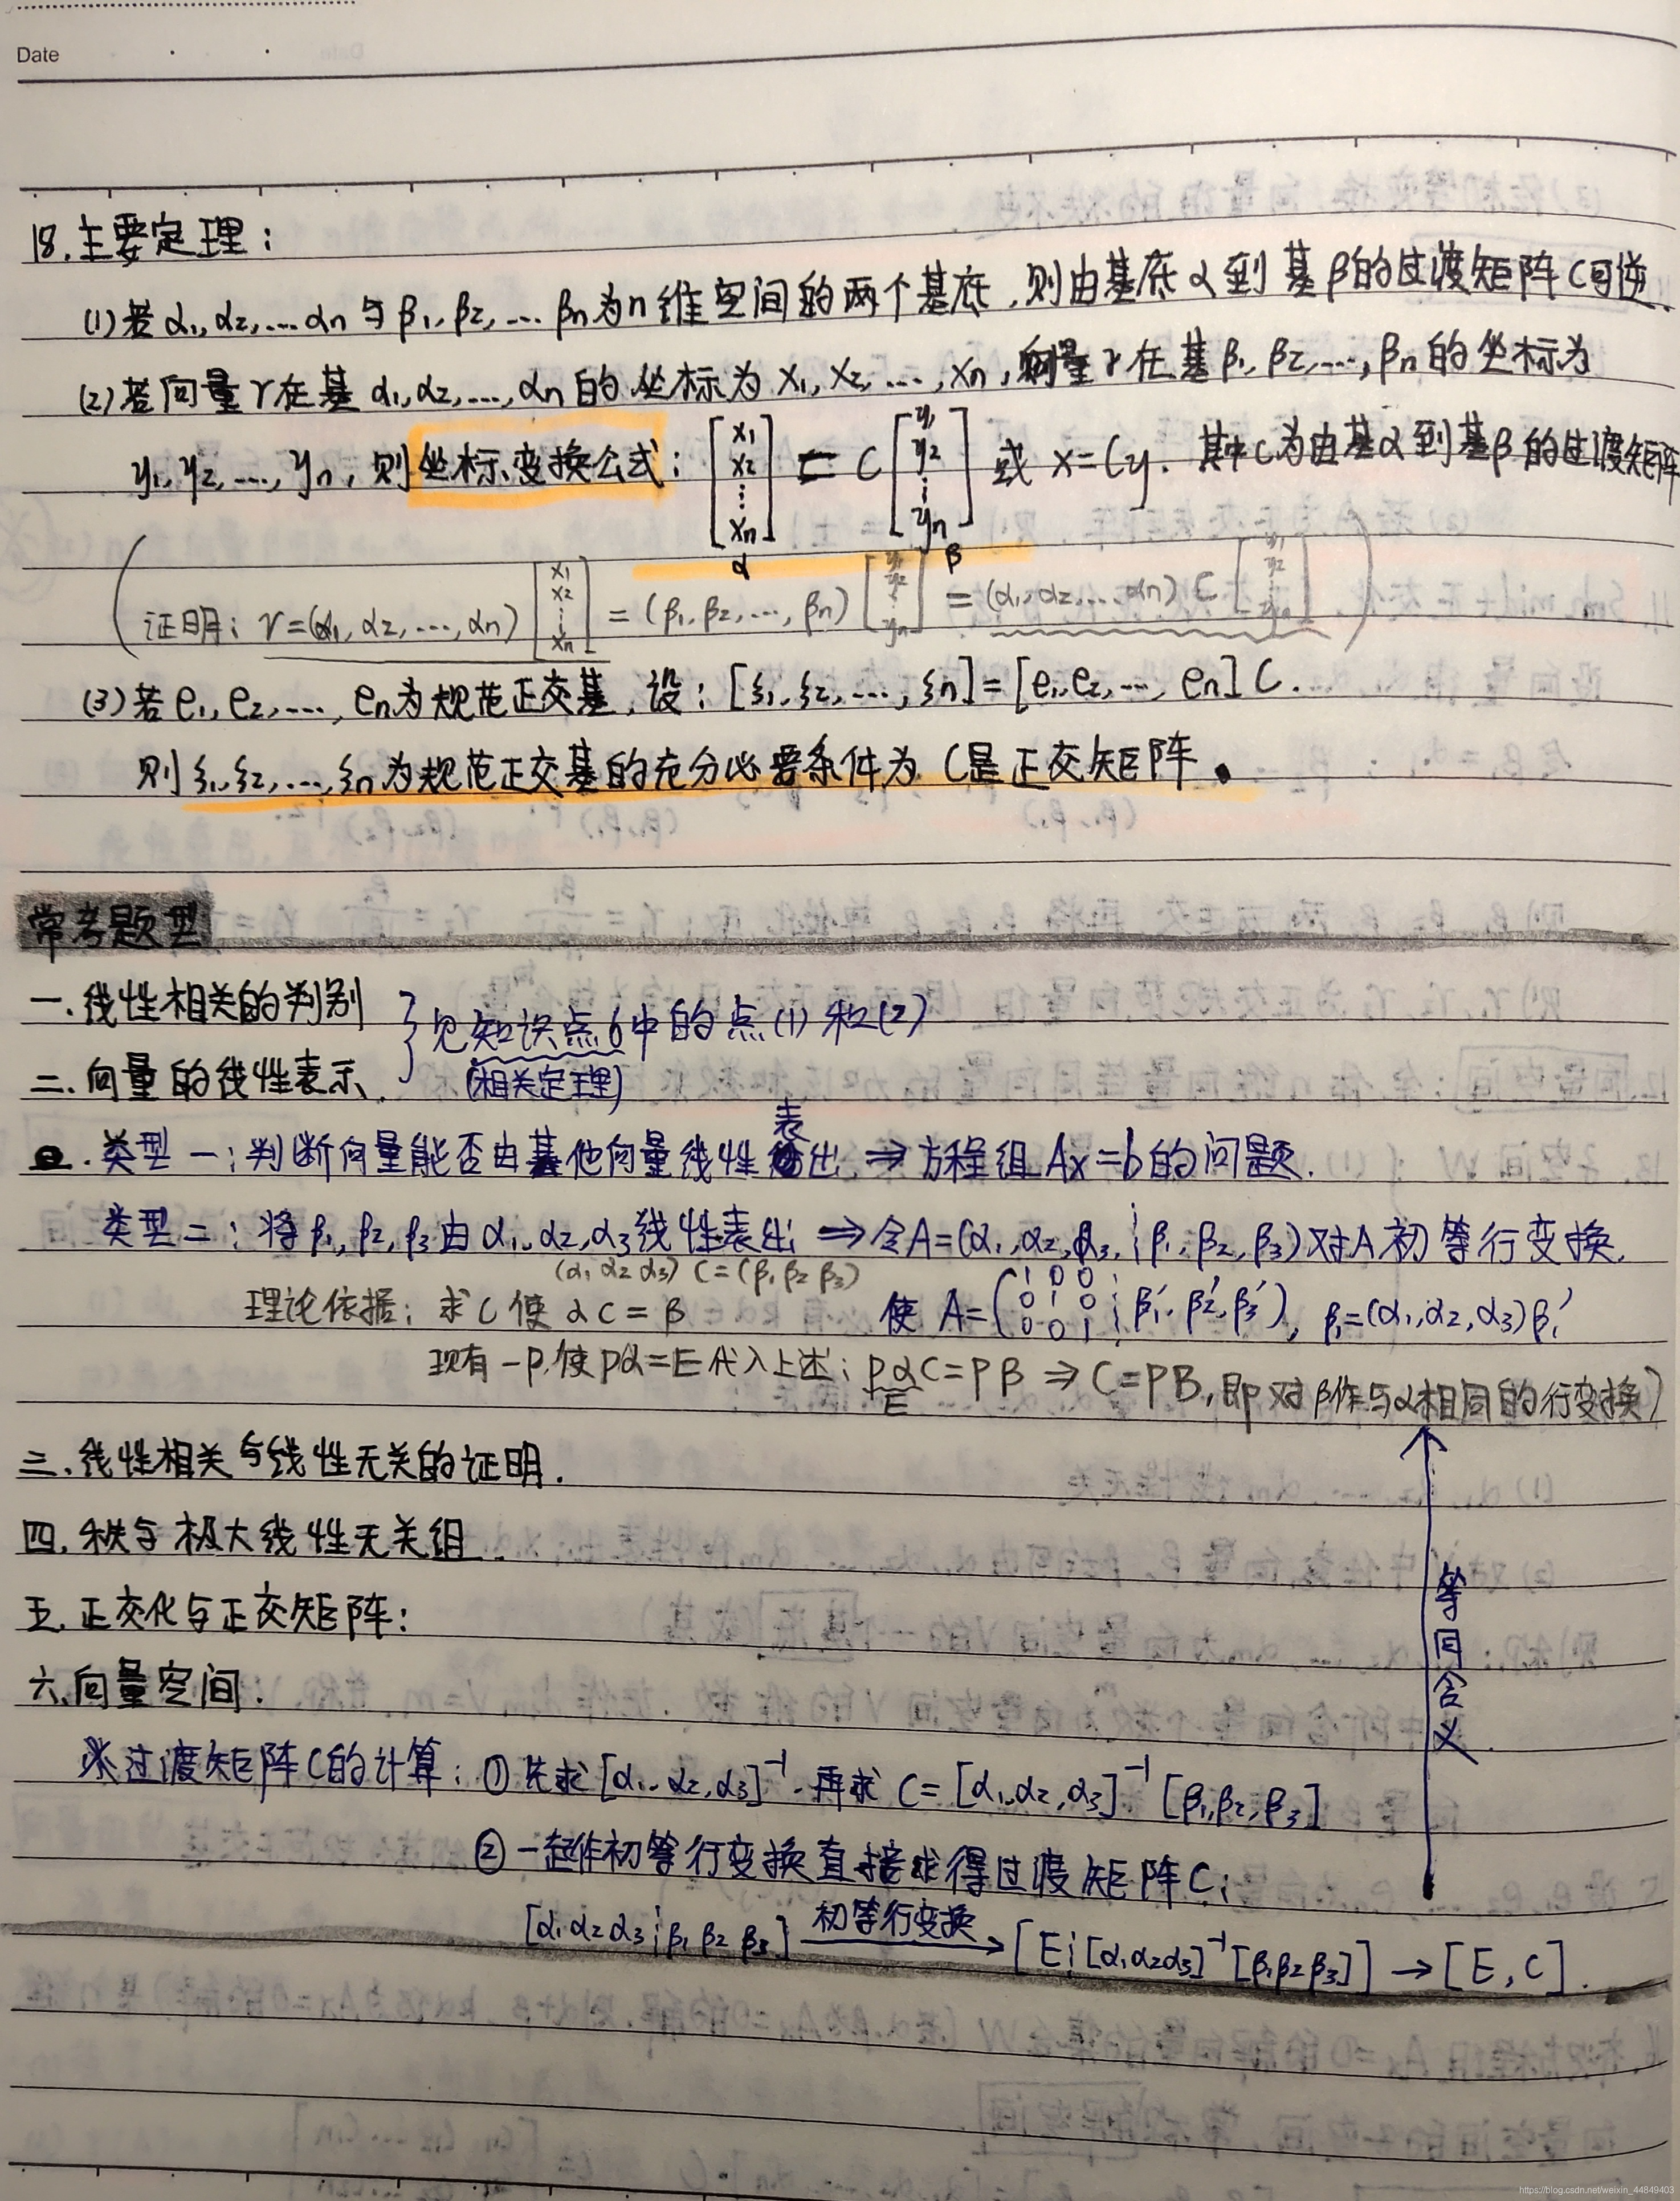 Date
18.主要定理:
(1)若α₁,α₂,...αn与β₁,β₂,...βn为n维空间的两个基底,则由基底α到基β的过渡矩阵C可逆.
(2)若向量γ在基α₁,α₂,...,αn的坐标为x₁,x₂,...,xn,向量γ在基β₁,β₂,...,βn的坐标为
y₁,y₂,...,yn,则坐标变换公式: [x₁ x₂ ⋮ xn] = C [y₁ y₂ ⋮ yn] 或 x=Cy. 其中C为由基α到基β的过渡矩阵
α β
(证明: γ=(α₁,α₂,...,αn) [x₁ x₂ ⋮ xn] = (β₁,β₂,...,βn) [y₁ y₂ ⋮ yn] = (α₁,α₂,...,αn) C [y₁ y₂ ⋮ yn])
(3)若e₁,e₂,...,en为规范正交基,设:[ξ₁,ξ₂,...,ξn]=[e₁,e₂,...,en]C.
则ξ₁,ξ₂,...,ξn为规范正交基的充分必要条件为C是正交矩阵.
常考题型
一.线性相关的判别
}见知识点6中的点(1)和(2)
二.向量的线性表示.
(相关定理)
类型一:判断向量能否由其他向量线性表出 ⇒ 方程组Ax=b的问题.
类型二:将β₁,β₂,β₃由α₁,α₂,α₃线性表出 ⇒ 令A=(α₁,α₂,α₃,⋮β₁,β₂,β₃)对A初等行变换.
(α₁ α₂ α₃) C=(β₁ β₂ β₃)
理论依据: 求C使αC=β
使 A=(1 0 0 0 1 0 0 0 1 ⋮ β₁′,β₂′,β₃′), β₁=(α₁,α₂,α₃)β₁′
现有一P,使Pα=E代入上述: PαC=Pβ ⇒ C=PB,即对β作与α相同的行变换)
E
三.线性相关与线性无关的证明.
四.秩与极大线性无关组.
五.正交化与正交矩阵:
等同含义
六.向量空间.
※过渡矩阵C的计算: ①先求[α₁,α₂,α₃]⁻¹.再求 C=[α₁,α₂,α₃]⁻¹[β₁,β₂,β₃]
②一起作初等行变换直接求得过渡矩阵C;
[α₁α₂α₃⋮β₁ β₂ β₃] 初等行变换→ [E⋮[α₁α₂α₃]⁻¹[β₁β₂β₃]] → [E,C].
https://blog.csdn.net/weixin_44849403